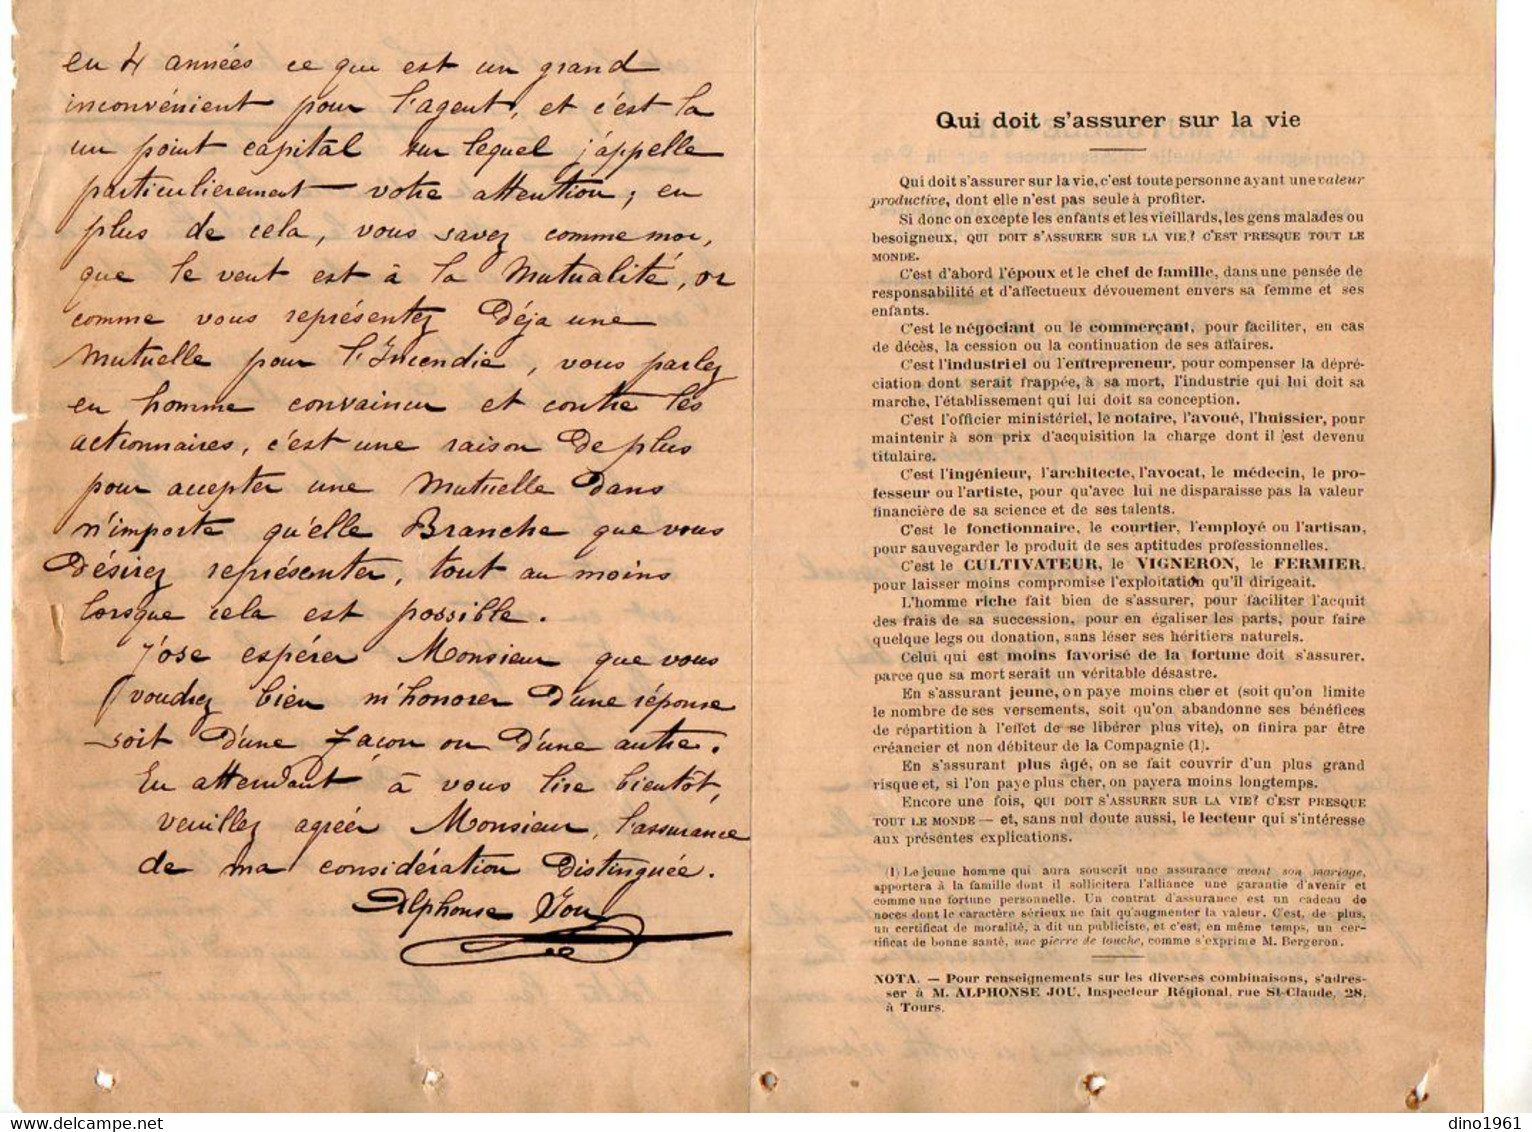 en 4 années ce que est un grand
inconvénient pour l'agent, et c'est la
un point capital sur lequel j'appelle
particulierement votre attention; en
plus de cela, vous savez comme moi,
que le vent est à la Mutualité, or
comme vous représentez Déja une
Mutuelle pour l'Incendie, vous parlez
en homme convaincu et contre les
actionnaires, c'est une raison De plus
pour accepter une Mutuelle Dans
n'importe qu'elle Branche que vous
Désirez représenter, tout au moins
lorsque cela est possible.
J'ose espérer Monsieur que vous
voudrez bien m'honorer D'une réponse
soit D'une façon ou D'une autre.
En attendant à vous lire bientôt,
veuillez agréer Monsieur, l'assurance
de ma considération Distinguée.
Alphonse Jou
Qui doit s'assurer sur la vie
Qui doit s'assurer sur la vie, c'est toute personne ayant une valeur
productive, dont elle n'est pas seule à profiter.
Si donc on excepte les enfants et les vieillards, les gens malades ou
besoigneux, QUI DOIT S'ASSURER SUR LA VIE? C'EST PRESQUE TOUT LE
MONDE.
C'est d'abord l'époux et le chef de famille, dans une pensée de
responsabilité et d'affectueux dévouement envers sa femme et ses
enfants.
C'est le négociant ou le commerçant, pour faciliter, en cas
de décès, la cession ou la continuation de ses affaires.
C'est l'industriel ou l'entrepreneur, pour compenser la dépré-
ciation dont serait frappée, à sa mort, l'industrie qui lui doit sa
marche, l'établissement qui lui doit sa conception.
C'est l'officier ministériel, le notaire, l'avoué, l'huissier, pour
maintenir à son prix d'acquisition la charge dont il est devenu
titulaire.
C'est l'ingénieur, l'architecte, l'avocat, le médecin, le pro-
fesseur ou l'artiste, pour qu'avec lui ne disparaisse pas la valeur
financière de sa science et de ses talents.
C'est le fonctionnaire, le courtier, l'employé ou l'artisan,
pour sauvegarder le produit de ses aptitudes professionnelles.
C'est le CULTIVATEUR, le VIGNERON, le FERMIER,
pour laisser moins compromise l'exploitation qu'il dirigeait.
L'homme riche fait bien de s'assurer, pour faciliter l'acquit
des frais de sa succession, pour en égaliser les parts, pour faire
quelque legs ou donation, sans léser ses héritiers naturels.
Celui qui est moins favorisé de la fortune doit s'assurer,
parce que sa mort serait un véritable désastre.
En s'assurant jeune, on paye moins cher et (soit qu'on limite
le nombre de ses versements, soit qu'on abandonne ses bénéfices
de répartition à l'effet de se libérer plus vite), on finira par être
créancier et non débiteur de la Compagnie (1).
En s'assurant plus âgé, on se fait couvrir d'un plus grand
risque et, si l'on paye plus cher, on payera moins longtemps.
Encore une fois, QUI DOIT S'ASSURER SUR LA VIE? C'EST PRESQUE
TOUT LE MONDE — et, sans nul doute aussi, le lecteur qui s'intéresse
aux présentes explications.
(1) Le jeune homme qui aura souscrit une assurance avant son mariage,
apportera à la famille dont il sollicitera l'alliance une garantie d'avenir et
comme une fortune personnelle. Un contrat d'assurance est un cadeau de
noces dont le caractère sérieux ne fait qu'augmenter la valeur. C'est, de plus,
un certificat de moralité, a dit un publiciste, et c'est, en même temps, un cer-
tificat de bonne santé, une pierre de touche, comme s'exprime M. Bergeron.
NOTA. — Pour renseignements sur les diverses combinaisons, s'adres-
ser à M. ALPHONSE JOU, Inspecteur Régional, rue St-Claude, 28,
à Tours.
dino1961